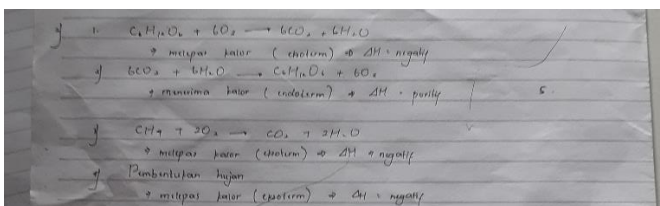 1. C₆H₁₂O₆ + 6O₂ → 6CO₂ + 6H₂O
→ melepas kalor (eksoterm) → ΔH = negatif
6CO₂ + 6H₂O → C₆H₁₂O₆ + 6O₂
→ menerima kalor (endoterm) → ΔH = positif
5.
CH₄ + 2O₂ → CO₂ + 2H₂O
→ melepas kalor (eksoterm) → ΔH = negatif
Pembentukan hujan
→ melepas kalor (eksoterm) → ΔH = negatif